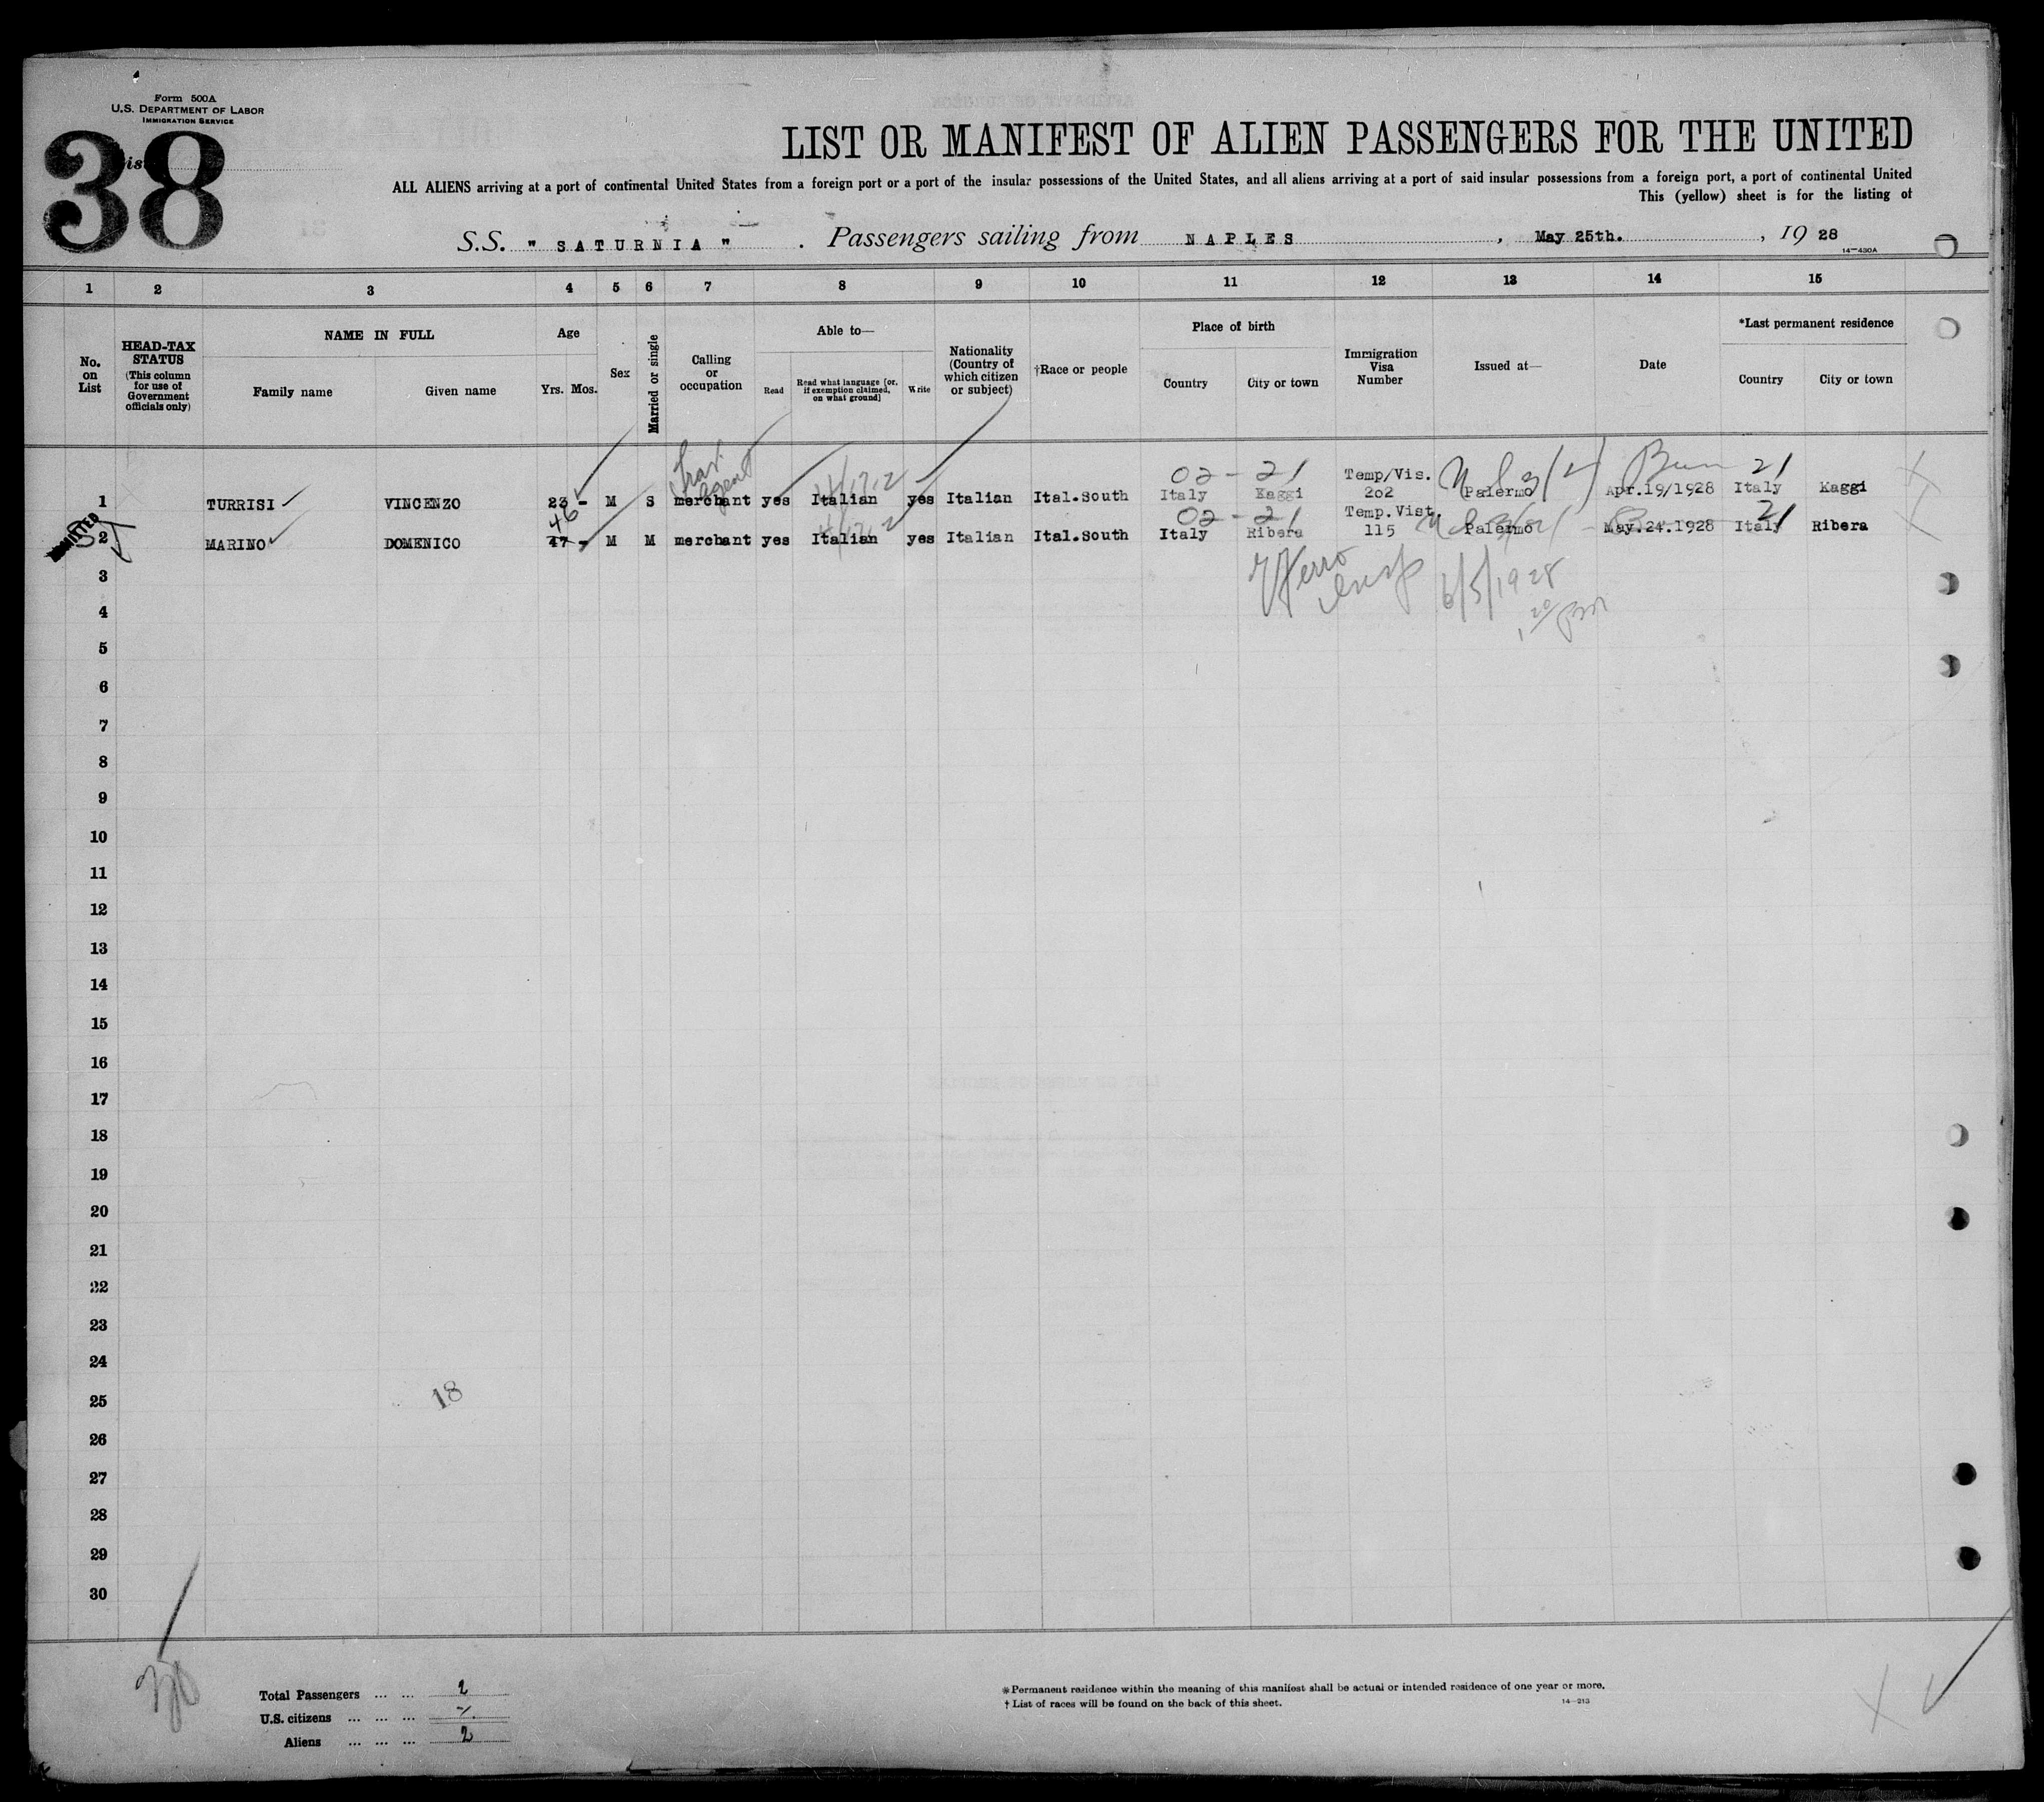 Form 500A
U.S. DEPARTMENT OF LABOR
IMMIGRATION SERVICE
38
LIST OR MANIFEST OF ALIEN PASSENGERS FOR THE UNITED
ALL ALIENS arriving at a port of continental United States from a foreign port or a port of the insular possessions of the United States, and all aliens arriving at a port of said insular possessions from a foreign port, a port of continental United
This (yellow) sheet is for the listing of
S.S. " SATURNIA " . Passengers sailing from NAPLES , May 25th. , 19 28
14—430A
1 2 3 4 5 6 7 8 9 10 11 12 13 14 15
No. on List
HEAD-TAX STATUS (This column for use of Government officials only)
NAME IN FULL
Family name
Given name
Age
Yrs. Mos.
Sex
Married or single
Calling or occupation
Able to—
Read
Read what language [or, if exemption claimed, on what ground]
Write
Nationality (Country of which citizen or subject)
†Race or people
Place of birth
Country
City or town
Immigration Visa Number
Issued at—
Date
*Last permanent residence
Country
City or town
Trav. agent
02 - 21
21
1 TURRISI VINCENZO 23 - M S merchant yes Italian yes Italian Ital.South Italy Kaggi Temp/Vis. 202 Palermo Apr.19/1928 Italy Kaggi
46
02 - 21
21
2 MARINO DOMENICO 47 - M M merchant yes Italian yes Italian Ital.South Italy Ribera Temp.Vist. 115 Palermo May.24.1928 Italy Ribera
6/5/1928
3
4
5
6
7
8
9
10
11
12
13
14
15
16
17
18
19
20
21
22
23
24
25
18
26
27
28
29
30
Total Passengers ... ... 2
U.S. citizens ... ... ...
Aliens ... ... ... 2
*Permanent residence within the meaning of this manifest shall be actual or intended residence of one year or more.
† List of races will be found on the back of this sheet.
14—213